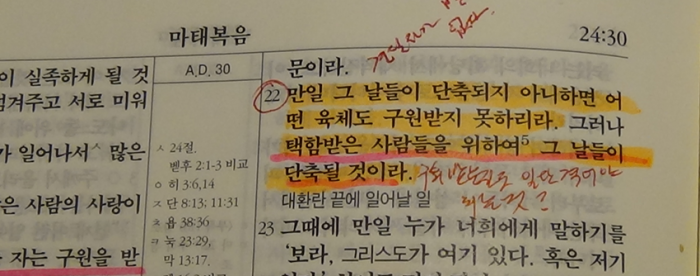 마태복음
24:30
이 실족하게 될 것
겨주고 서로 미워
가 일어나서ㅅ 많은
은 사람의 사랑이
자는 구원을 받
A.D. 30
ㅅ 24절,
벧후 2:1-3 비교
ㅇ 히 3:6,14
ㅈ 단 8:13; 11:31
ㅊ 욥 38:36
ㅋ 눅 23:29,
막 13:17.
문이라.
22 만일 그 날들이 단축되지 아니하면 어
떤 육체도 구원받지 못하리라. 그러나
택함받은 사람들을 위하여5 그 날들이
단축될 것이라.
대환란 끝에 일어날 일
23 그때에 만일 누가 너희에게 말하기를
‘보라, 그리스도가 여기 있다. 혹은 저기